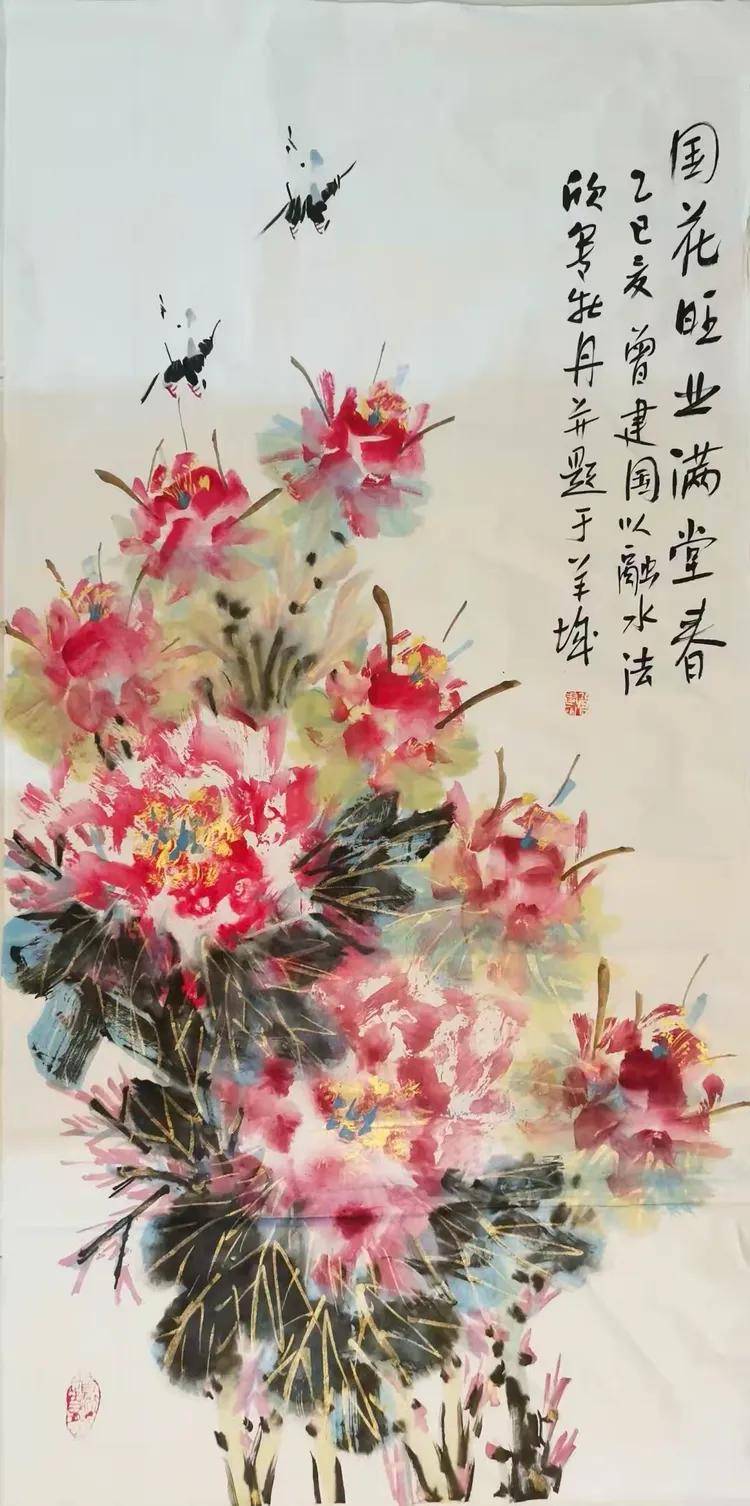 国花旺业满堂春
乙巳夏 曾建国以融水法
欣写牡丹并题于羊城